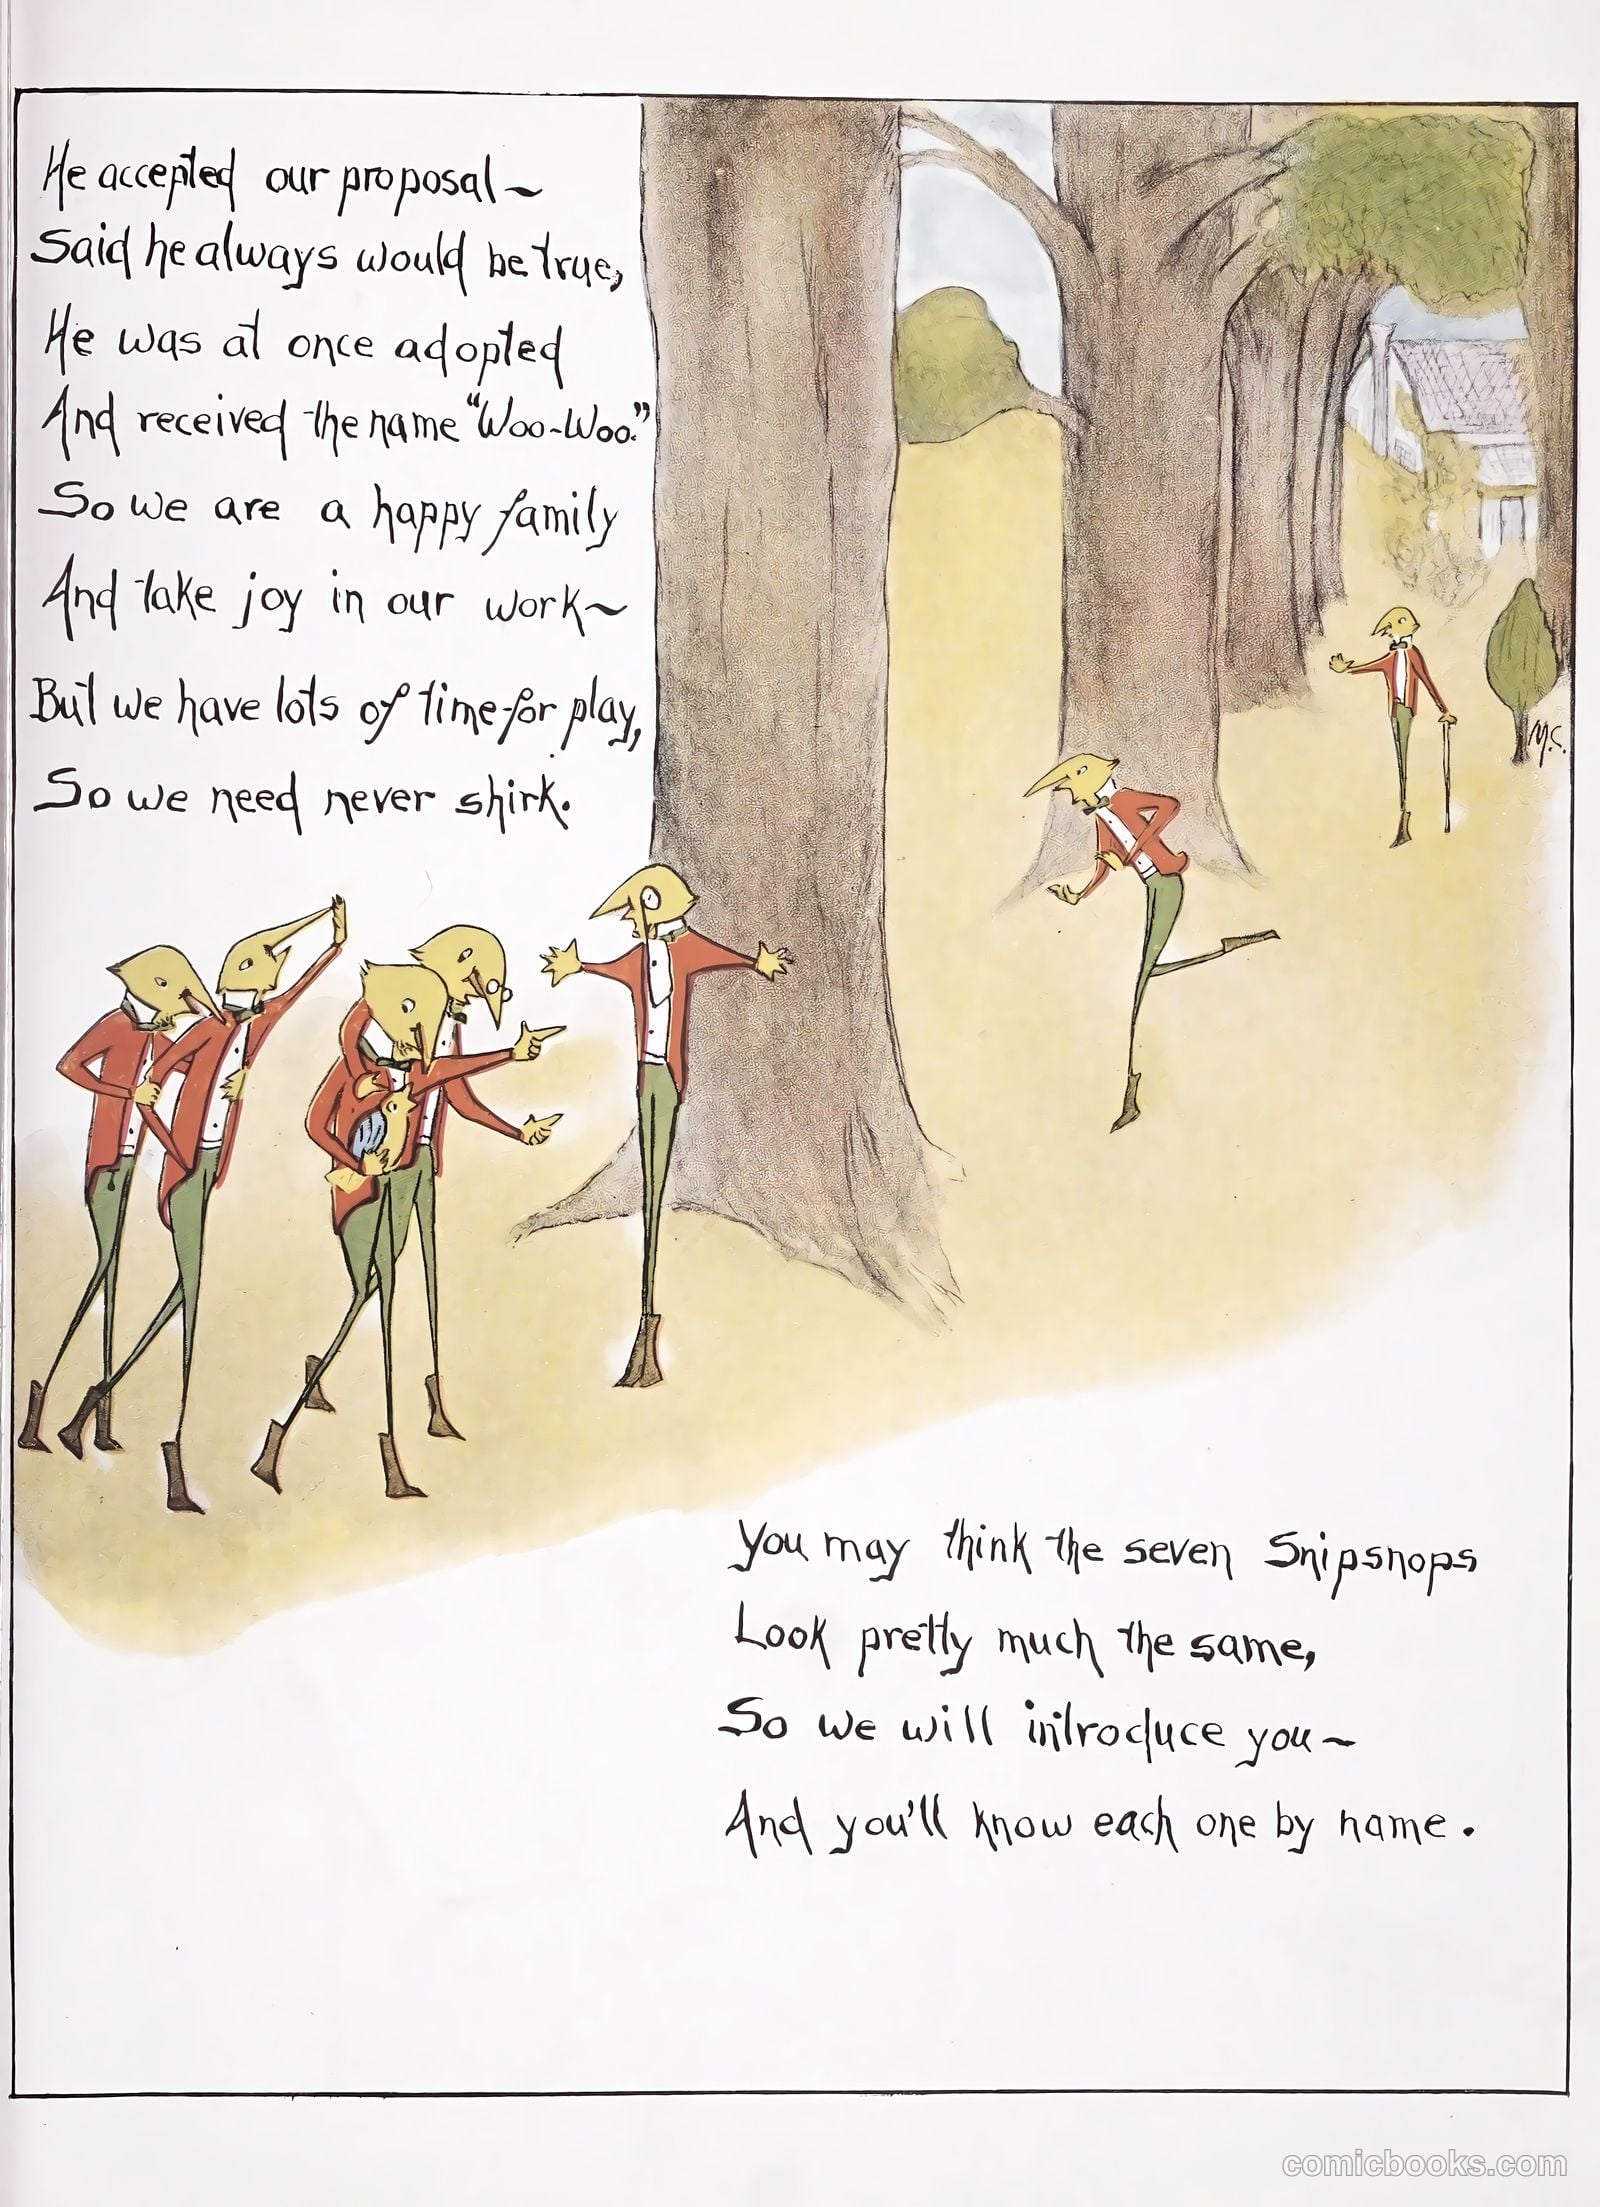 He accepted our proposal~
Said he always would be true,
He was at once adopted
And received the name "Woo-Woo."
So we are a happy family
And take joy in our work~
But we have lots of time for play,
So we need never shirk.
M.C.
You may think the seven Snipsnops
Look pretty much the same,
So we will introduce you~
And you'll know each one by name.
comicbooks.com